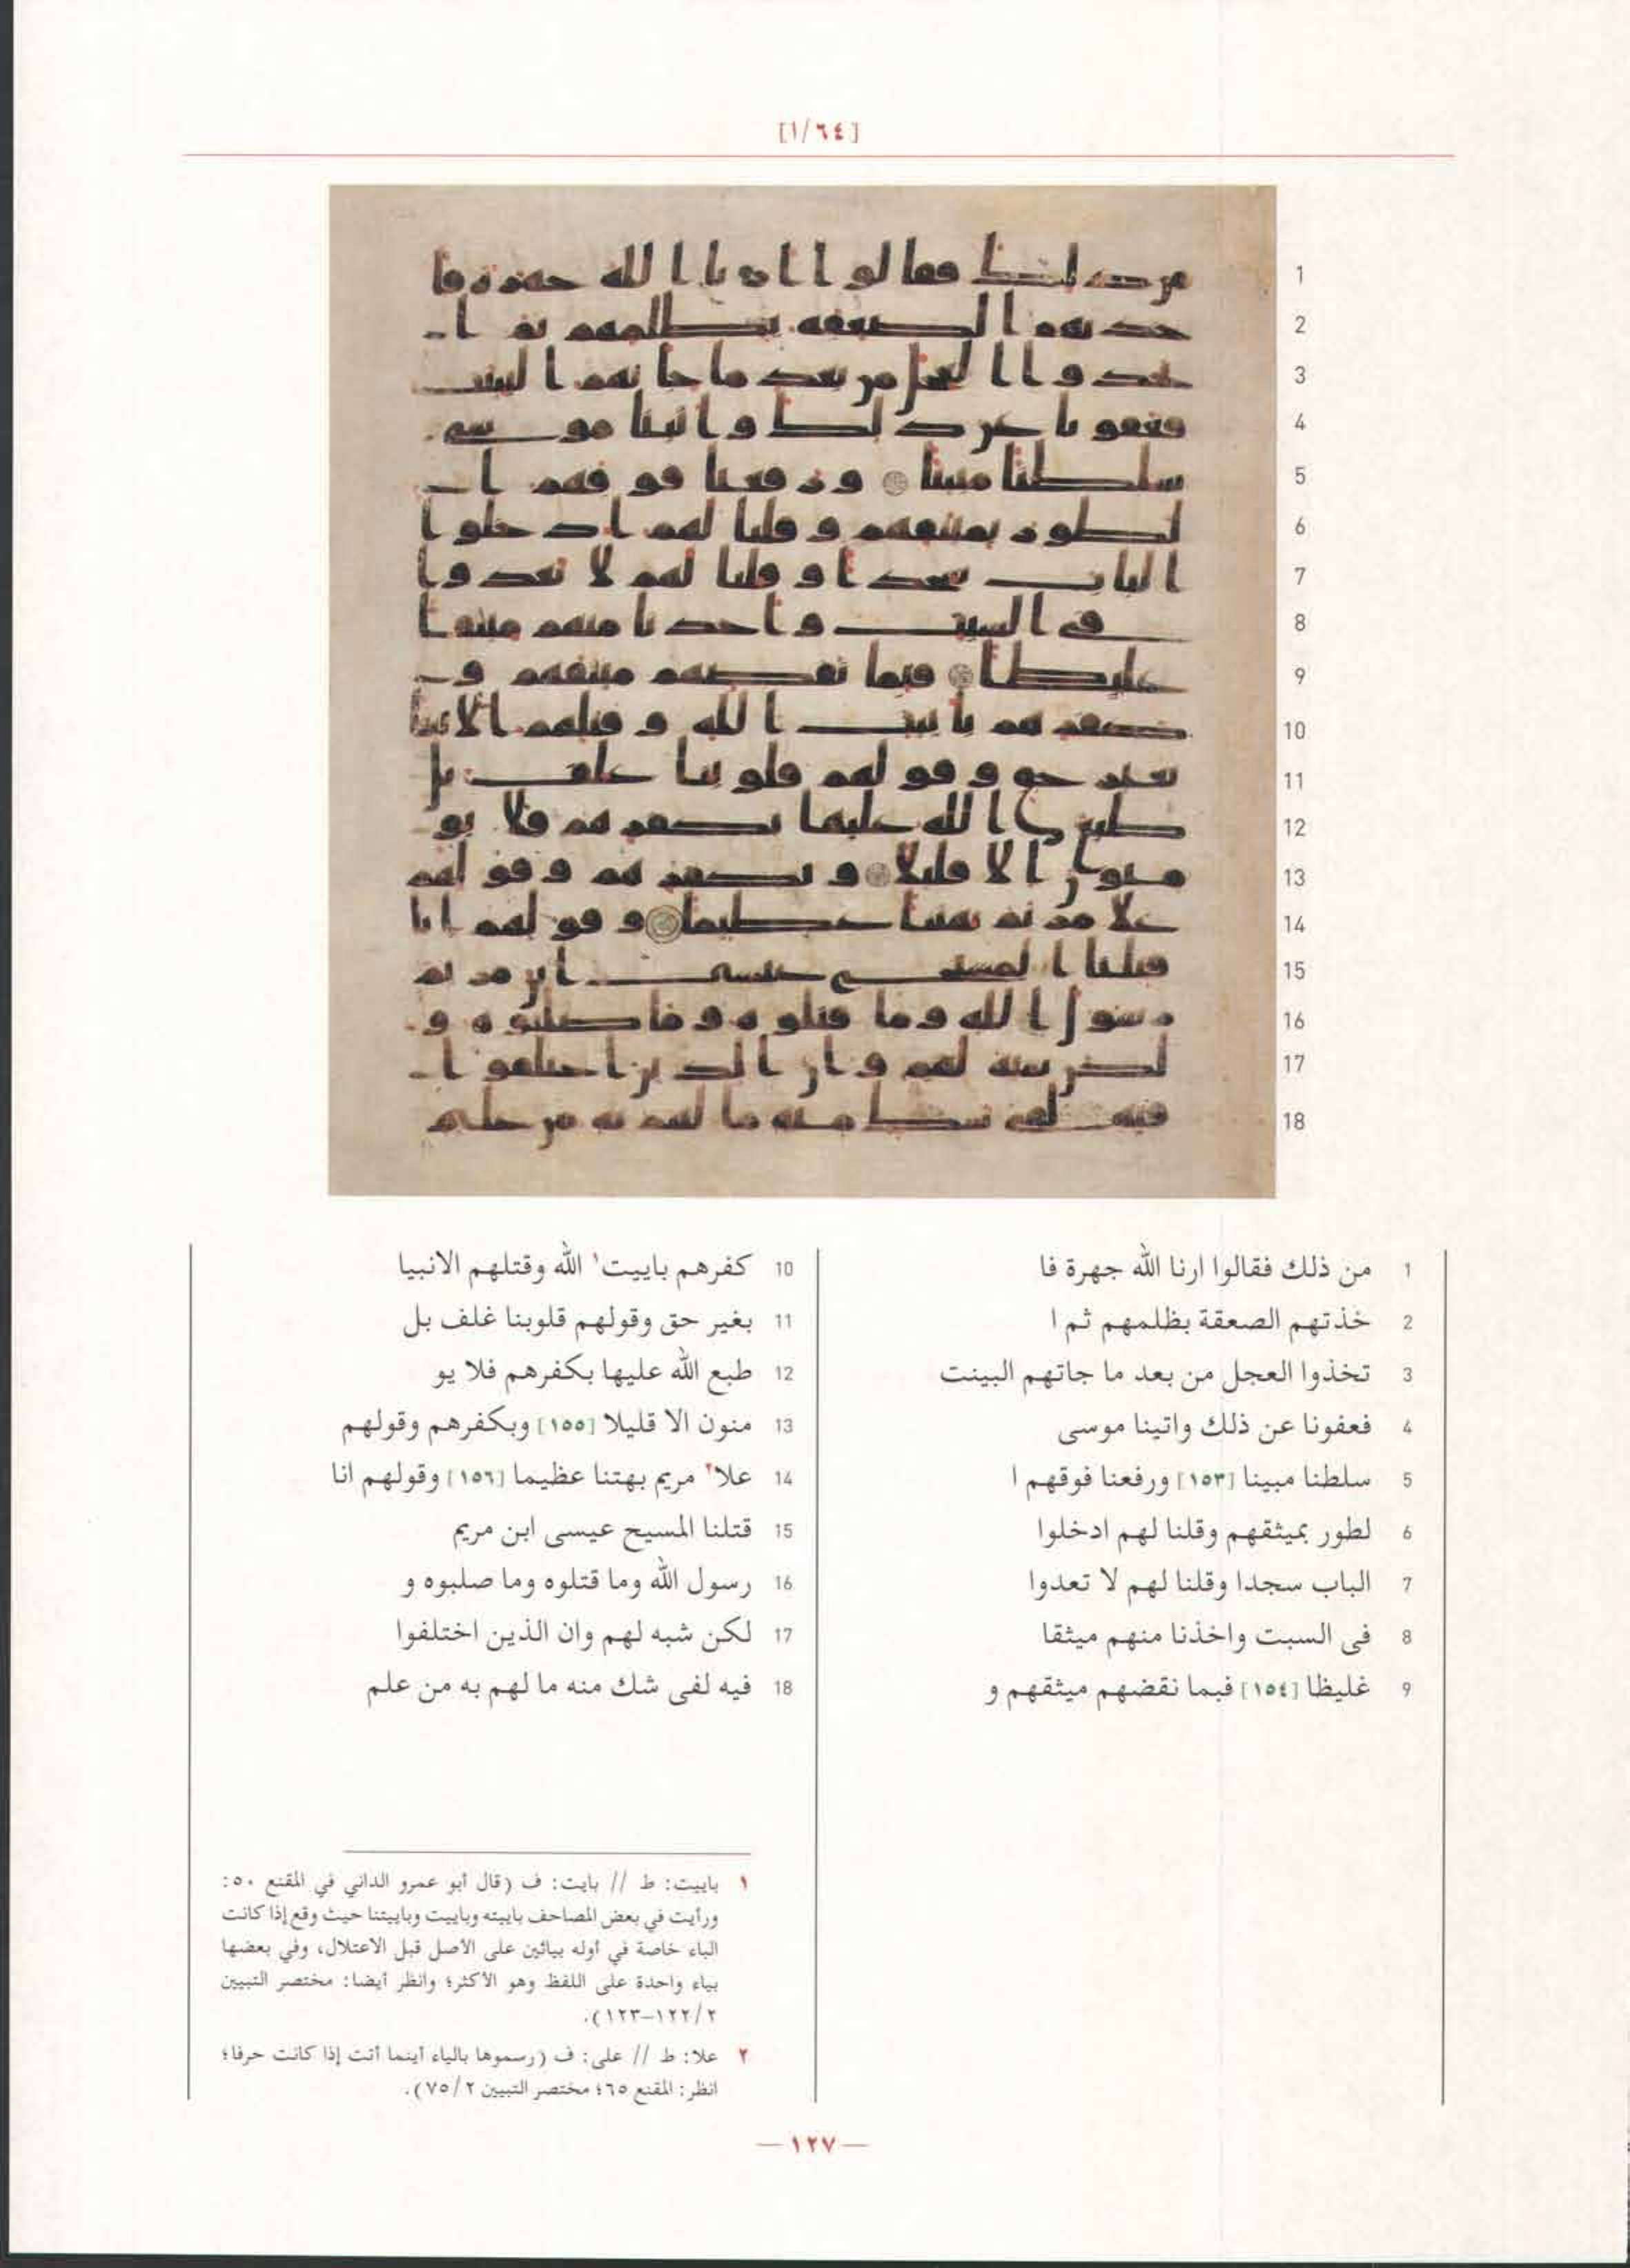 [١/٦٤]
1 من ذلك فقالوا ارنا الله جهرة فا
2 خذتهم الصعقة بظلمهم ثم ا
3 تخذوا العجل من بعد ما جاتهم البينت
4 فعفونا عن ذلك واتينا موسى
5 سلطنا مبينا [١٥٣] ورفعنا فوقهم ا
6 لطور بميثقهم وقلنا لهم ادخلوا
7 الباب سجدا وقلنا لهم لا تعدوا
8 فى السبت واخذنا منهم ميثقا
9 غليظا [١٥٤] فبما نقضهم ميثقهم و
10 كفرهم باييت١ الله وقتلهم الانبيا
11 بغير حق وقولهم قلوبنا غلف بل
12 طبع الله عليها بكفرهم فلا يو
13 منون الا قليلا [١٥٥] وبكفرهم وقولهم
14 علا٢ مريم بهتنا عظيما [١٥٦] وقولهم انا
15 قتلنا المسيح عيسى ابن مريم
16 رسول الله وما قتلوه وما صلبوه و
17 لكن شبه لهم وان الذين اختلفوا
18 فيه لفى شك منه ما لهم به من علم
١ باييت: ط // بايت: ف (قال أبو عمرو الداني في المقنع ٥٠:
ورأيت في بعض المصاحف باييته وباييت وباييتنا حيث وقع إذا كانت
الباء خاصة في أوله بيائين على الأصل قبل الاعتلال، وفي بعضها
بياء واحدة على اللفظ وهو الأكثر؛ وانظر أيضا: مختصر التبيين
٢/١٢٢–١٢٣).
٢ علا: ط // على: ف (رسموها بالياء أينما أتت إذا كانت حرفا؛
انظر: المقنع ٦٥؛ مختصر التبيين ٢/٧٥).
— ١٢٧ —